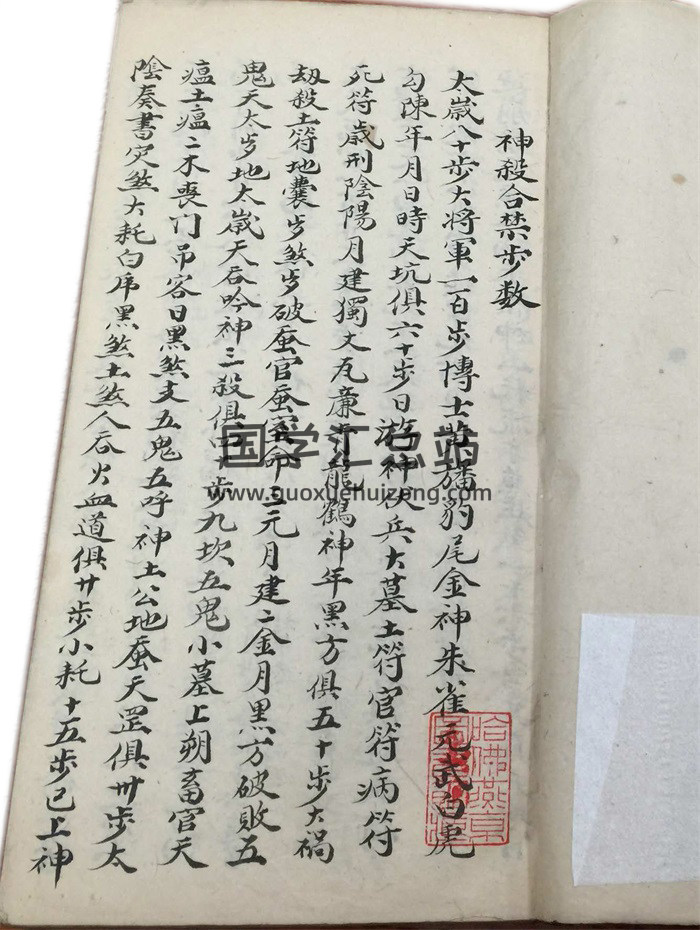 神殺合禁步数
太歳八十步大將軍一百步博士黄旛豹尾金神朱雀元武白虎
勾陳年月日時天坑俱六十步日游神伏兵大墓土符官符病符
死符歳刑陰陽月建獨丈瓦廉青龍鶴神年黑方俱五十步大禍
刼殺土符地囊步煞步破蚕官蚕命三元月建二金月黑方破敗五
鬼天太步地太歳天吞吟神三殺俱四十步九坎五鬼小墓上朔畜官天
瘟土瘟二木喪门吊客日黑煞支五鬼五呼神土公地蚕天罡俱卅步太
陰奏書灾煞大耗白虎黑煞土煞人吞火血道俱廿步小耗十五步已上神
国学汇总站
www.guoxuehuizong.com
哈佛燕京